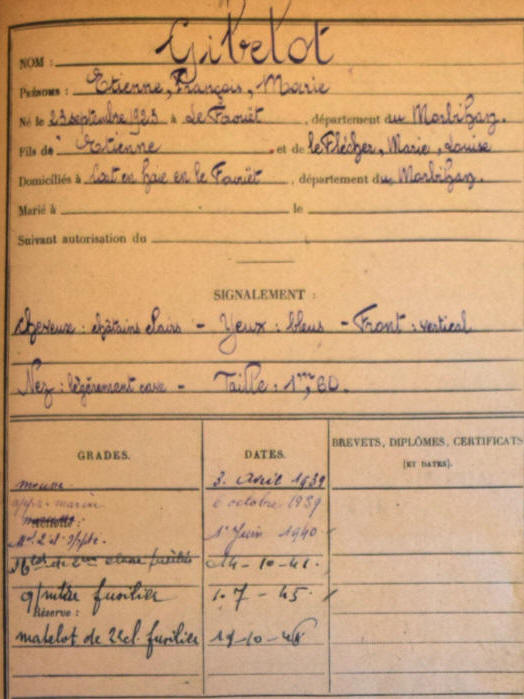 NOM : Gibelot
PRÉNOMS : Etienne, François, Marie
Né le 23 septembre 1923 à Le Faouët , département du Morbihan.
Fils de Etienne , et de le Flécher, Marie, Louise
Domiciliés à en le Faouët , département du Morbihan.
Marié à le
Suivant autorisation du
SIGNALEMENT :
cheveux : châtains clairs – Yeux : bleus – Front : vertical
Nez : légèrement cave – Taille : 1m60.
GRADES. DATES. BREVETS, DIPLÔMES, CERTIFICATS
(ET DATES).
mousse 3 Avril 1939
appr. marin 6 octobre 1939
1er Juin 1940
de 2me classe fusilier 14-10-41
fusilier 1.7-45
Réserve :
matelot de 2e cl. fusilier 19-10-46